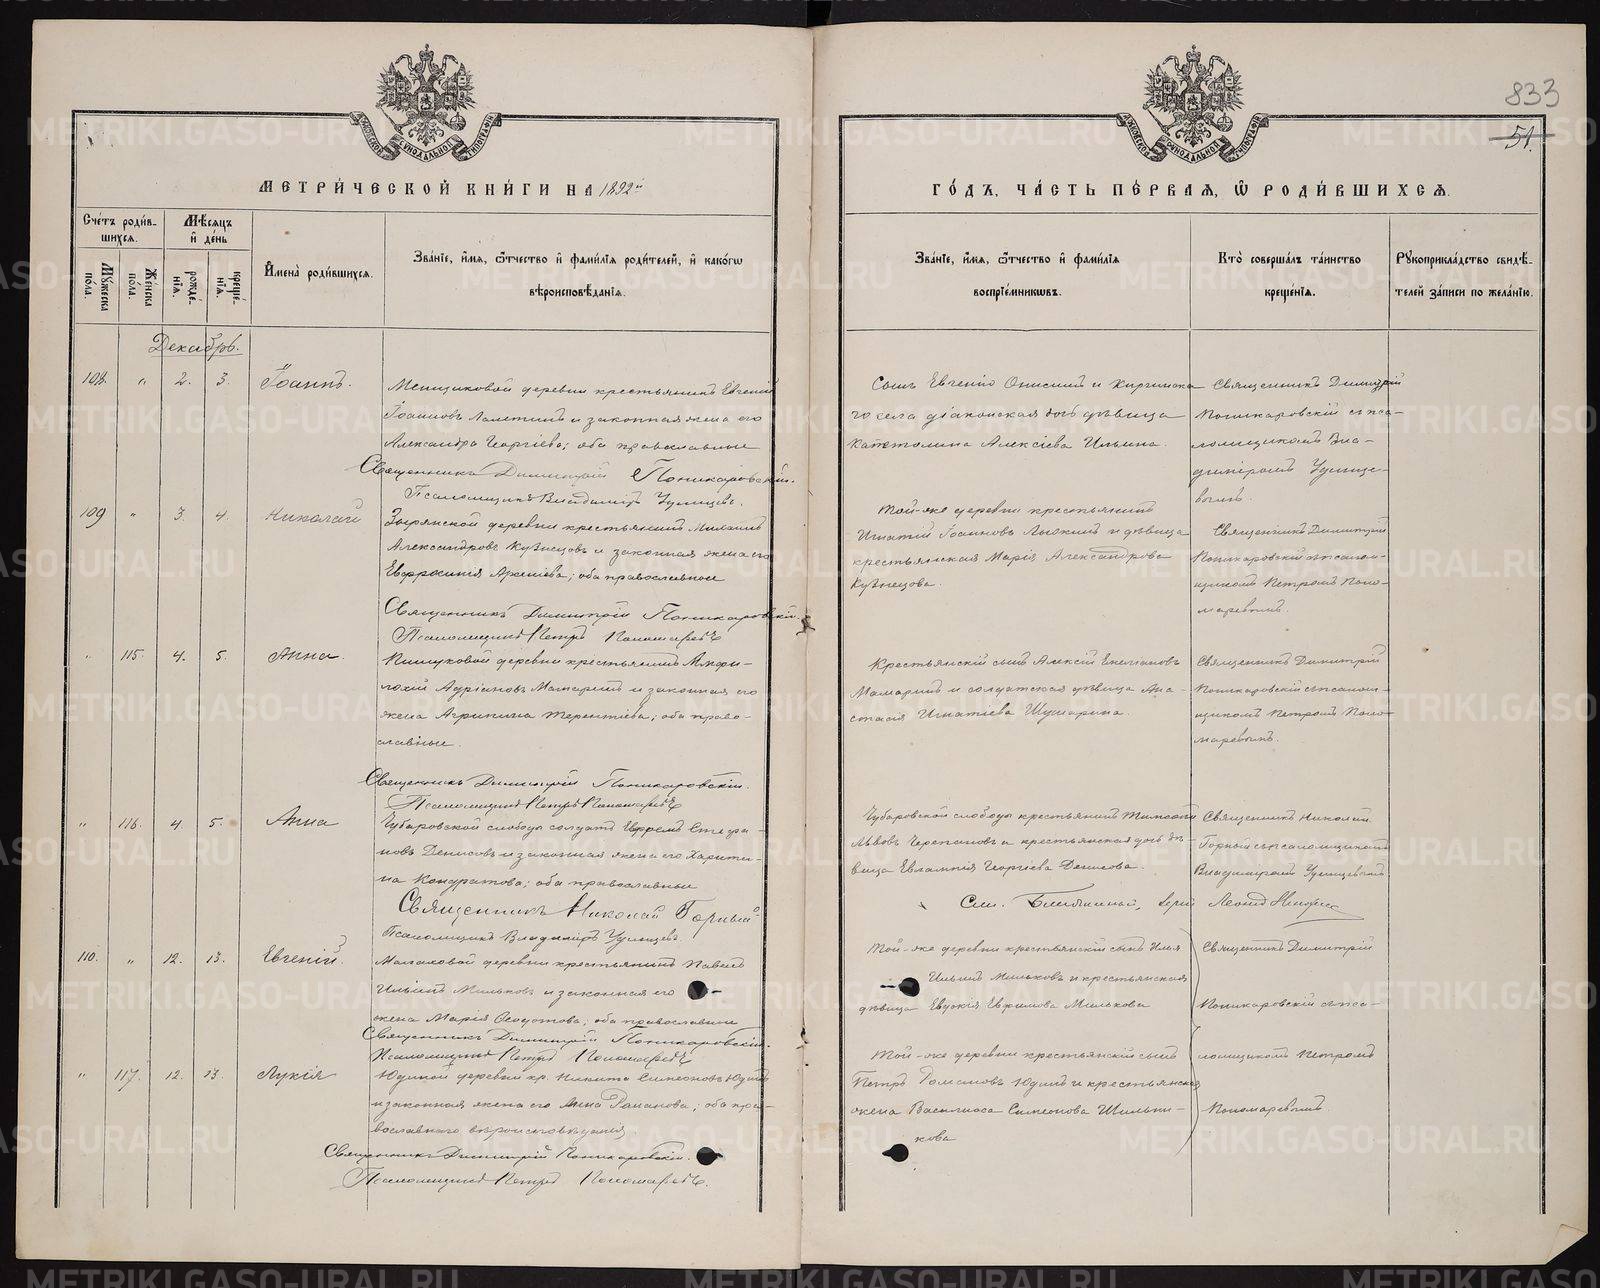 833
51.
МЕТРИ́ЧЕСКОЙ КНИ́ГИ НА 1892й
ГО́ДЪ, ЧА́СТЬ ПЕ́РВАЯ, Ѿ РОДИ́ВШИХСЯ.
Сче́тъ роди́в-
шихся.
Мѣ́сяцъ
и҆ де́нь
И҆мена̀ роди́вшихся.
Зва́нїе, и҆́мя, ѻ҆́тчество и҆ фамѝлїя роди́телей, и҆ како́гѡ
вѣроисповѣ́данїя.
Мꙋ́жеска по́ла.
Же́нска по́ла.
рожде́-нїѧ.
креще́-нїѧ.
Зва́нїе, и҆́мя, ѻ҆́тчество и҆ фами́лїя
воспрїе́мникѡвъ.
Кто̀ соверша́лъ та́инство
креще́нїя.
Рꙋкоприкла́дство свидѣ́-
телей за́писи по жела́нїю.
Декабрь.
108. " 2. 3. Іоаннъ.
крестьянинъ Евгеній
Іоанновъ и законная жена его
Александра Георгіева; оба православные
Священникъ Димитрій Поникаровскій.
Псаломщикъ Владиміръ
Сынъ Евгенія Онисимъ и
го села діаконская дочь дѣвица
Алексіева Ильина.
Священникъ Димитрій
Поникаровскій съ пса-
ломщикомъ Вла-
диміромъ
109 " 3. 4. Николай
Зырянской деревни крестьянинъ
Александровъ Кузнецовъ и законная жена его
Евфросинія; оба православные
Священникъ Димитрій Поникаровскій
Псаломщикъ Петръ Пономаревъ
Той-же деревни крестьянинъ
Игнатій Іоанновъ и дѣвица
крестьянская Марія Александрова
Кузнецова.
Священникъ Димитрій
Поникаровскій съ псалом-
щикомъ Петромъ Поно-
маревымъ.
" 115. 4. 5. Анна.
деревни крестьянинъ Амфи-
лохій Адріановъ Мамаринъ и законная его
жена Агрипина Терентіева; оба право-
славные.
Священникъ Димитрій Поникаровскій.
Псаломщикъ Петръ Пономаревъ
Крестьянскій сынъ Алексій
Мамаринъ и солдатская дѣвица Ана-
стасія Игнатіева
Священникъ Димитрій
Поникаровскій съ псалом-
щикомъ Петромъ Поно-
маревымъ.
" 116. 4. 5. Анна
Чубаровской слободы солдатъ Ефремъ Стефа-
новъ Денисовъ и законная жена его Харити-
на Кондратова; оба православные
Священникъ Николай Горный
Псаломщикъ Владиміръ
Чубаровской слободы крестьянинъ Тимофей
Львовъ Черепановъ и крестьянская дочь дѣ-
вица Евлампія Георгіева Денисова.
Священникъ Николай
Горный съ псаломщикомъ
Владиміромъ
110. " 12. 13. Евгеній.
деревни крестьянинъ Павелъ
Ильинъ Мильковъ и законная его
жена Марія; оба православные
Священникъ Димитрій Поникаровскій.
Псаломщикъ Петръ Пономаревъ
Той-же деревни крестьянскій сынъ Илья
Ильинъ Мильковъ и крестьянская
дѣвица Евдокія Ефимова Милькова
Священникъ Димитрій
Поникаровскій съ пса-
" 117. 12. 13. Лукія
Юдиной деревни кр. Никита Симеоновъ Юдинъ
и законная жена его Анна Романова; оба пра-
вославнаго вѣроисповѣданія.
Священникъ Димитрій Поникаровскій.
Псаломщикъ Петръ Пономаревъ.
Той-же деревни крестьянскій сынъ
Петръ Романовъ Юдинъ и крестьянская
жена Василиса Симеонова Шильни-
кова
ломщикомъ Петромъ
Пономаревымъ
METRIKI.GASO-URAL.RU